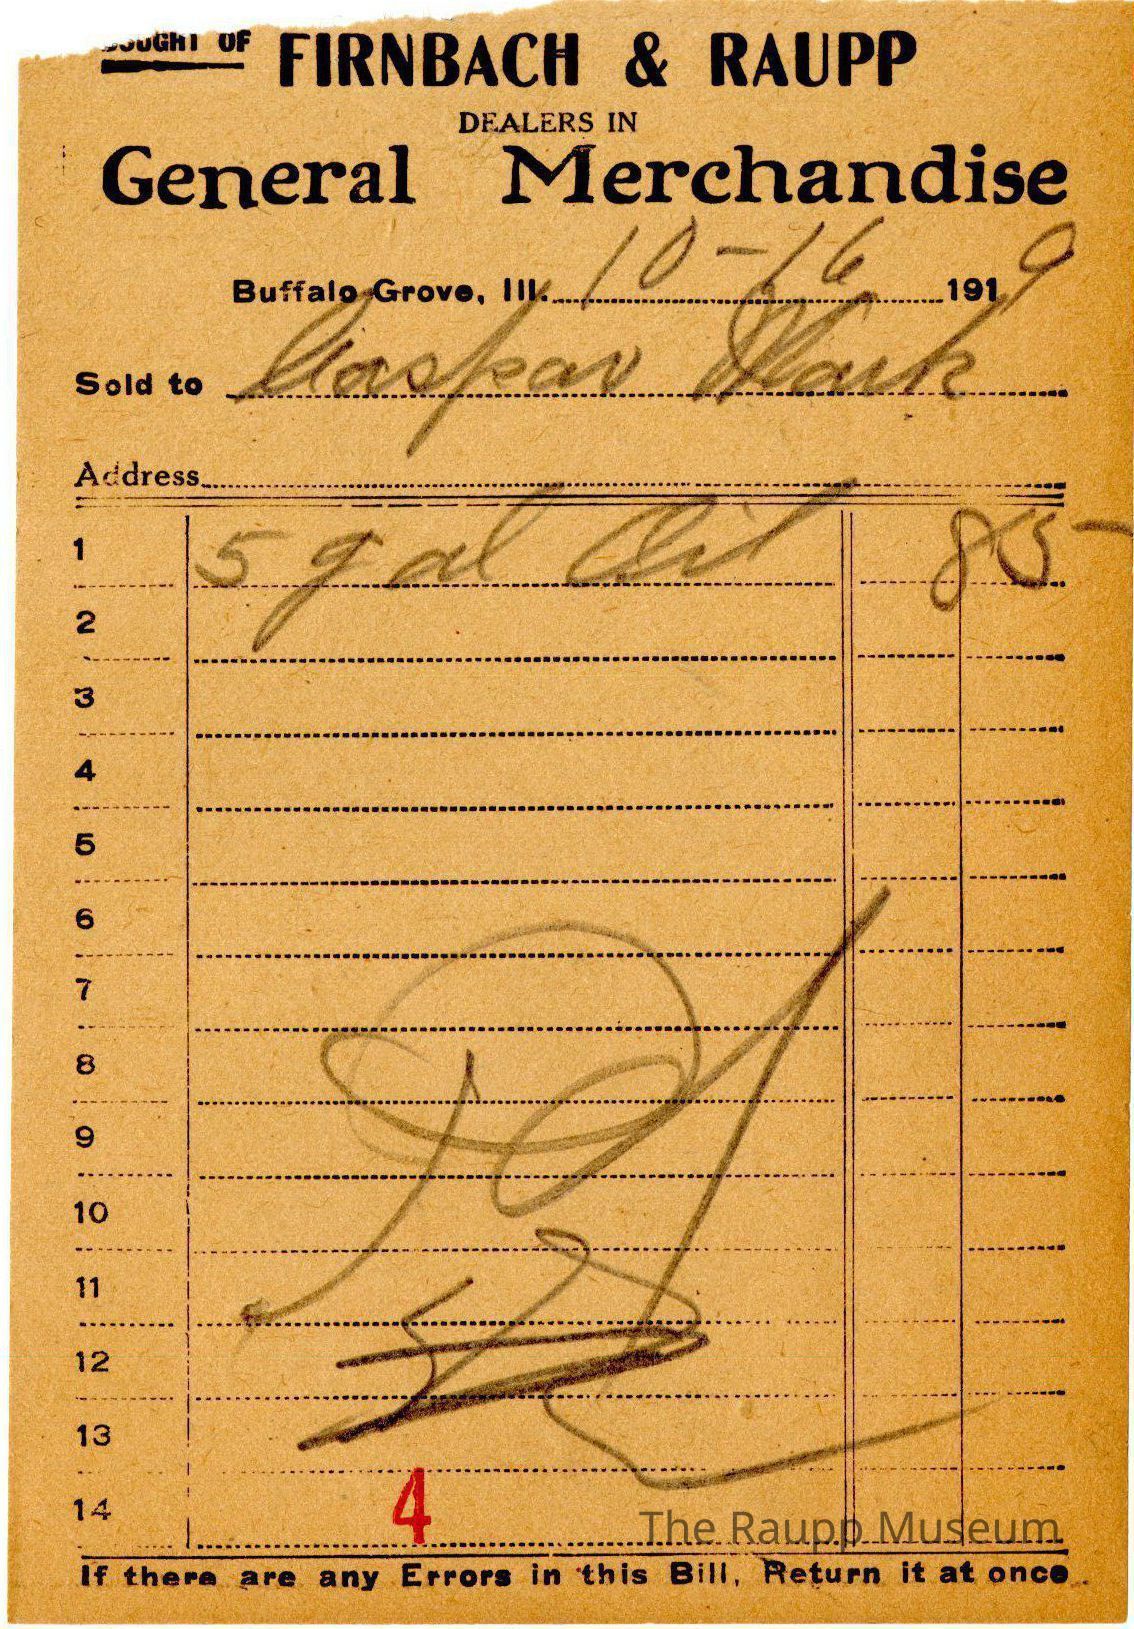 BOUGHT OF FIRNBACH & RAUPP
DEALERS IN
General Merchandise
Buffalo Grove, Ill. 10-16 1919
Sold to Caspar
Address
1 5 gal Oil 85
2
3
4
5
6
7
8
9
10
11
12
13
14 4
The Raupp Museum
If there are any Errors in this Bill, Return it at once.